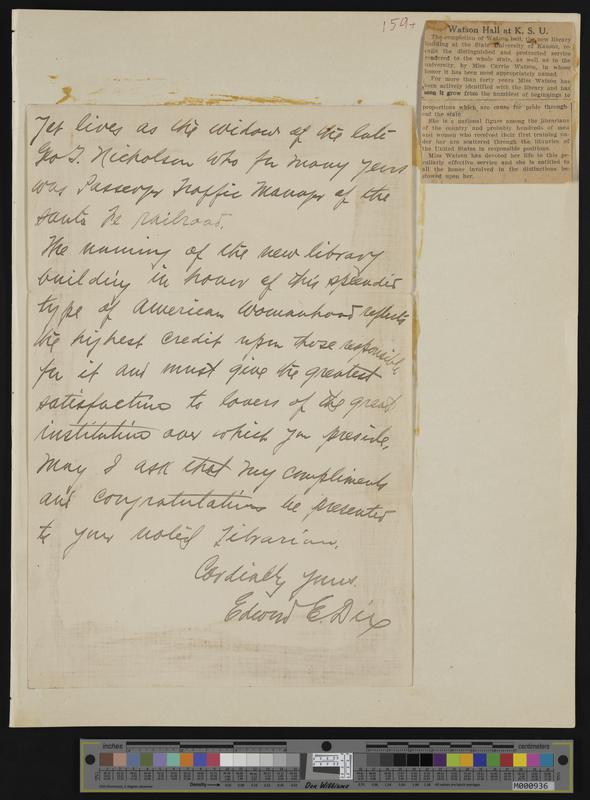 159+
Yet lives as the widow of the late
Geo. T. Nicholson who for many years
was Passenger Traffic Manager of the
Santa Fe railroad.
The naming of the new library
building in honor of this splendid
type of American Womanhood reflects
the highest credit upon those responsible
for it and must give the greatest
satisfaction to lovers of the great
institution over which you preside.
May I ask that my compliments
and congratulations be presented
to your noted Librarian.
Cordially yours.
Edward E. Dix
Watson Hall at K. S. U.
The completion of Watson hall, the new library
building at the State University of Kansas, re-
calls the and protracted service
rendered to the whole state, as well as to the
university, by Miss Carrie Watson, in whose
honor it has been most appropriately named.
For more than forty years Miss Watson has
been actively identified with the library and has
seen it grow from the humblest of beginnings to
proportions which are cause for pride through-
out the state.
She is a national figure among the librarians
of the country and probably hundreds of men
and women who received their first training un-
der her are scattered through the libraries of
the United States in responsible positions.
Miss Watson has devoted her life to this pe-
culiarly effective service and she is entitled to
all the honor involved in the distinctions be-
stowed upon her.
inches
centimeters
Density
Don Williams
M000936